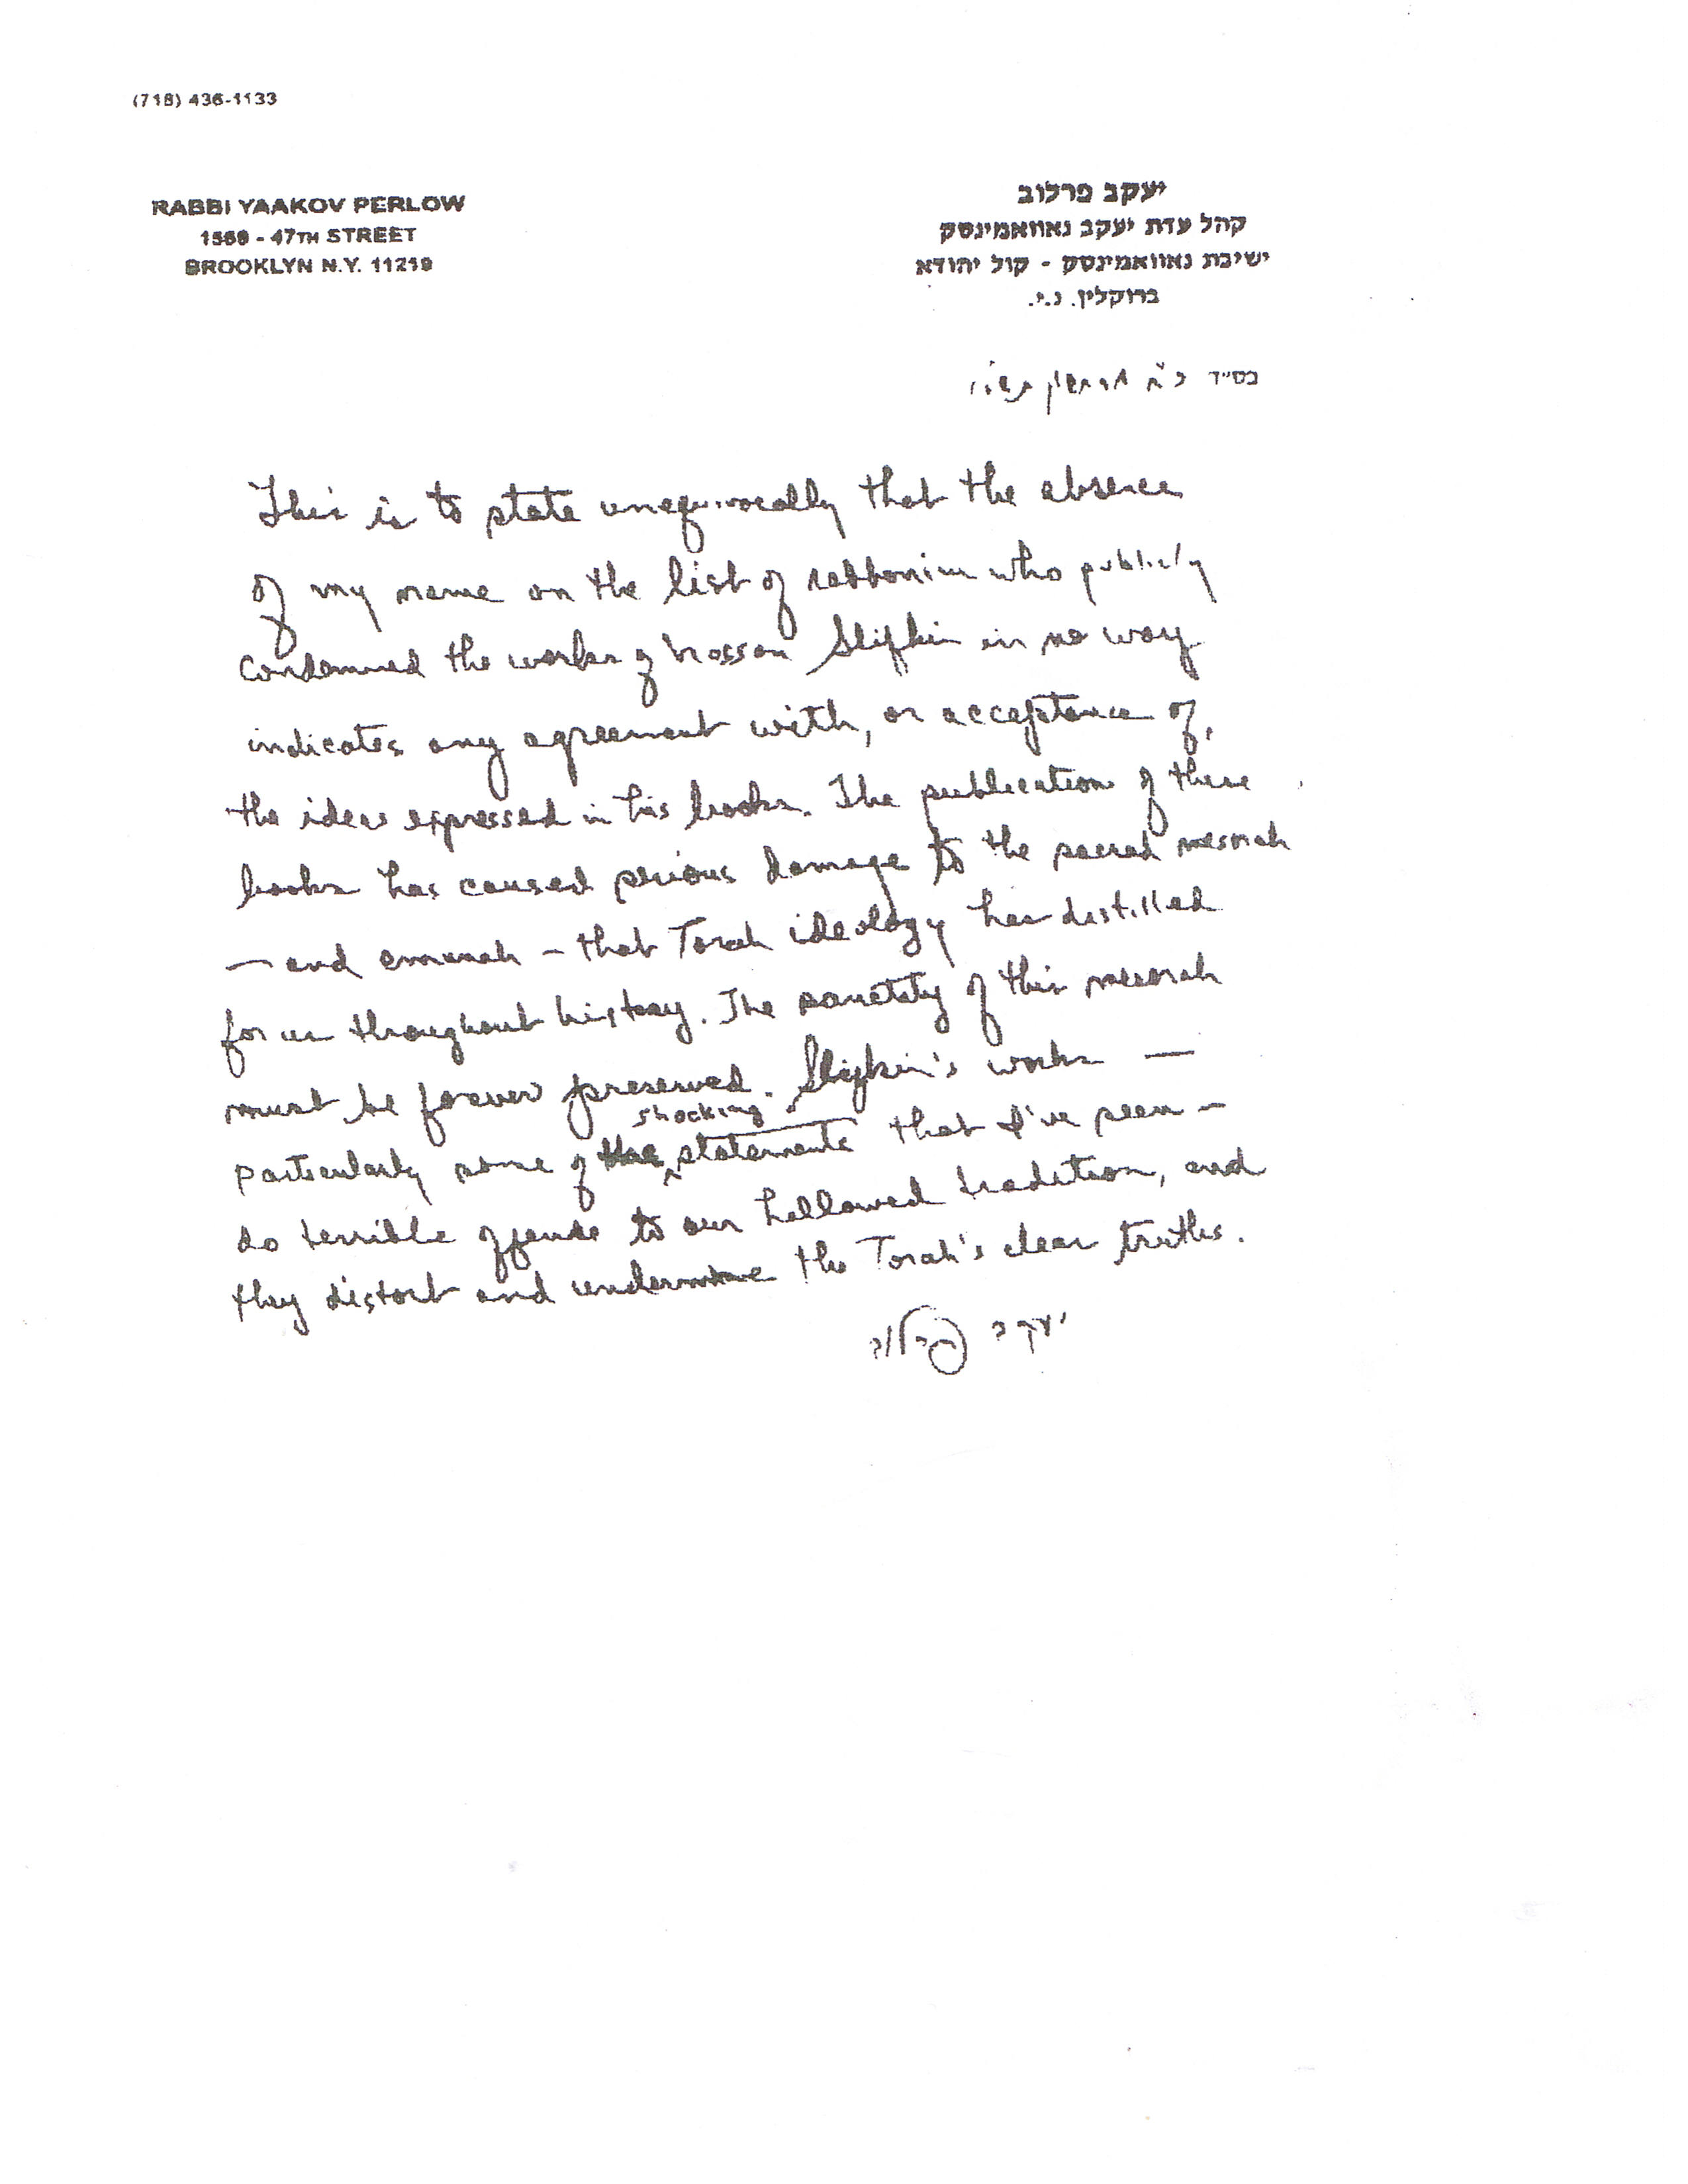 (718) 436-1133
RABBI YAAKOV PERLOW
1569 - 47TH STREET
BROOKLYN N.Y. 11219
יעקב פרלוב
קהל עדת יעקב נאוואמינסק
ישיבת נאוואמינסק - קול יהודא
ברוקלין. נ.י.
בס"ד
This is to state unequivocally that the absence
of my name on the list of rabbonim who publicly
condemned the works of Nosson Slifkin in no way
indicates any agreement with, or acceptance of,
the ideas expressed in his books. The publication of these
books has caused serious damage to the sacred mesorah
— and emunah - that Torah ideology has distilled
for us throughout history. The sanctity of this mesorah
must be forever preserved. Slifkin's works —
particularly some of the shocking statements that I've seen -
do terrible offense to our hallowed tradition, and
they distort and undermine the Torah's clear truths.
יעקב פרלוב